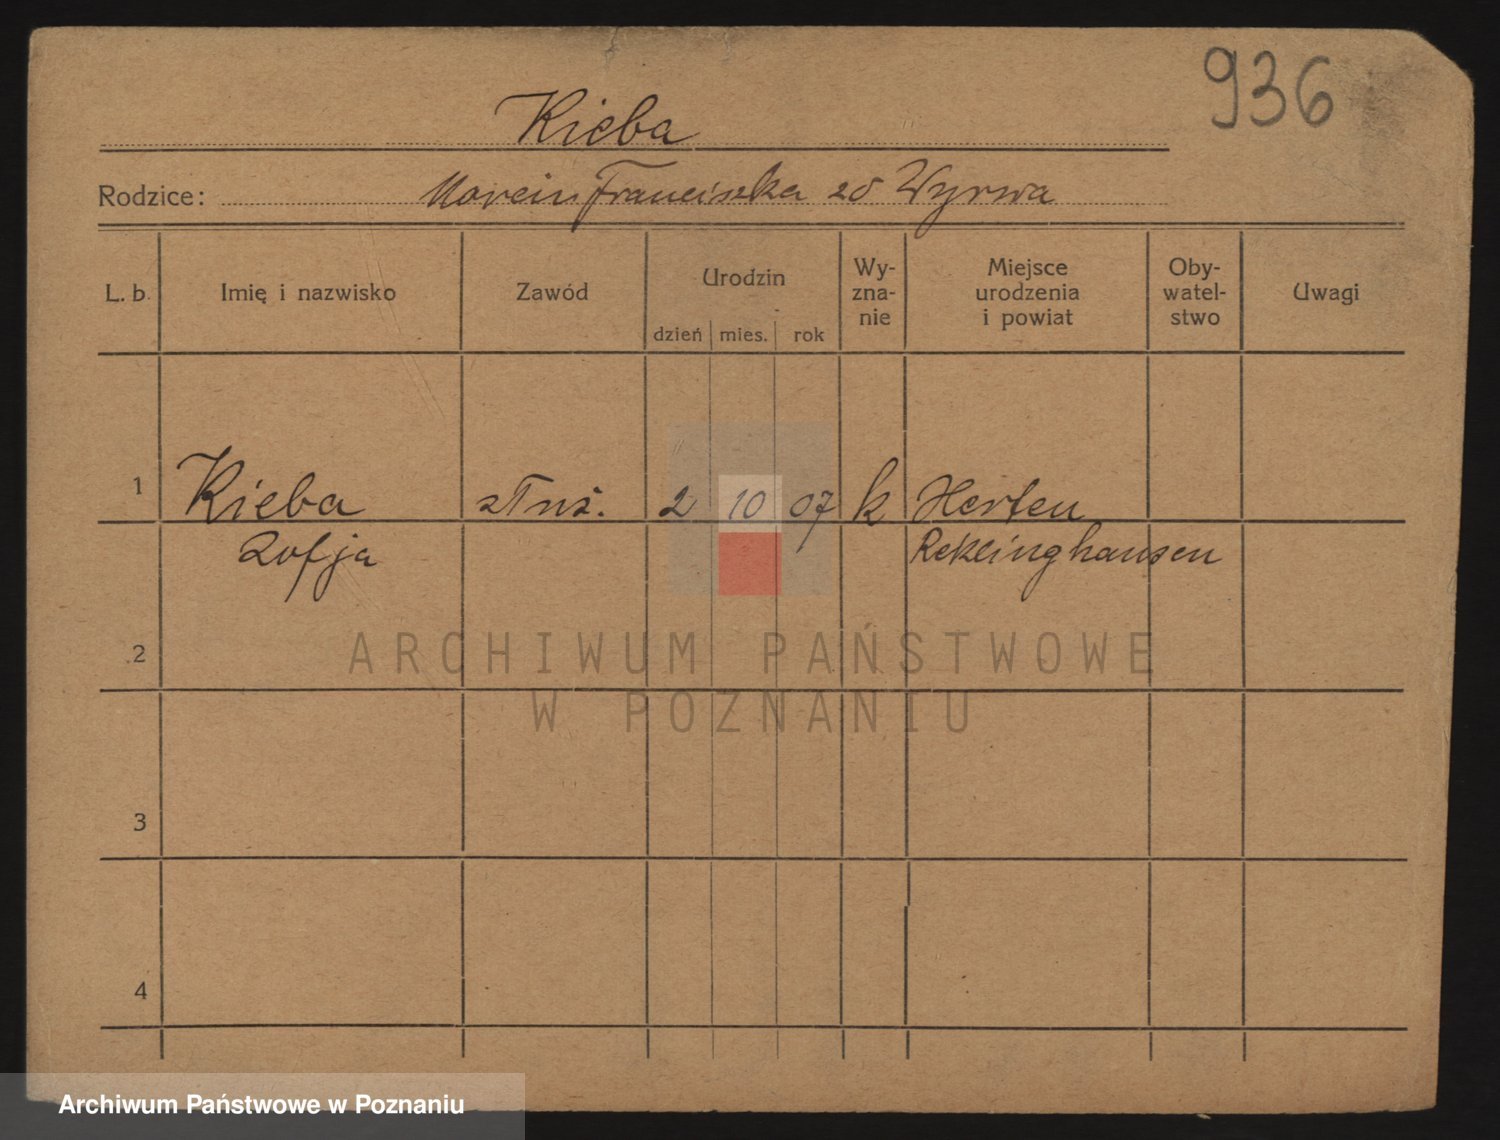 936
Kieba
Rodzice: Marcin Franciszka zd Wyrwa
L. b. Imię i nazwisko Zawód Urodzin dzień mies. rok Wy-zna-nie Miejsce urodzenia i powiat Oby-watel-stwo Uwagi
1 Kieba służ. 2 10 07 k Herten
Zofja Reklinghausen
2
3
4
ARCHIWUM PAŃSTWOWE
W POZNANIU
Archiwum Państwowe w Poznaniu